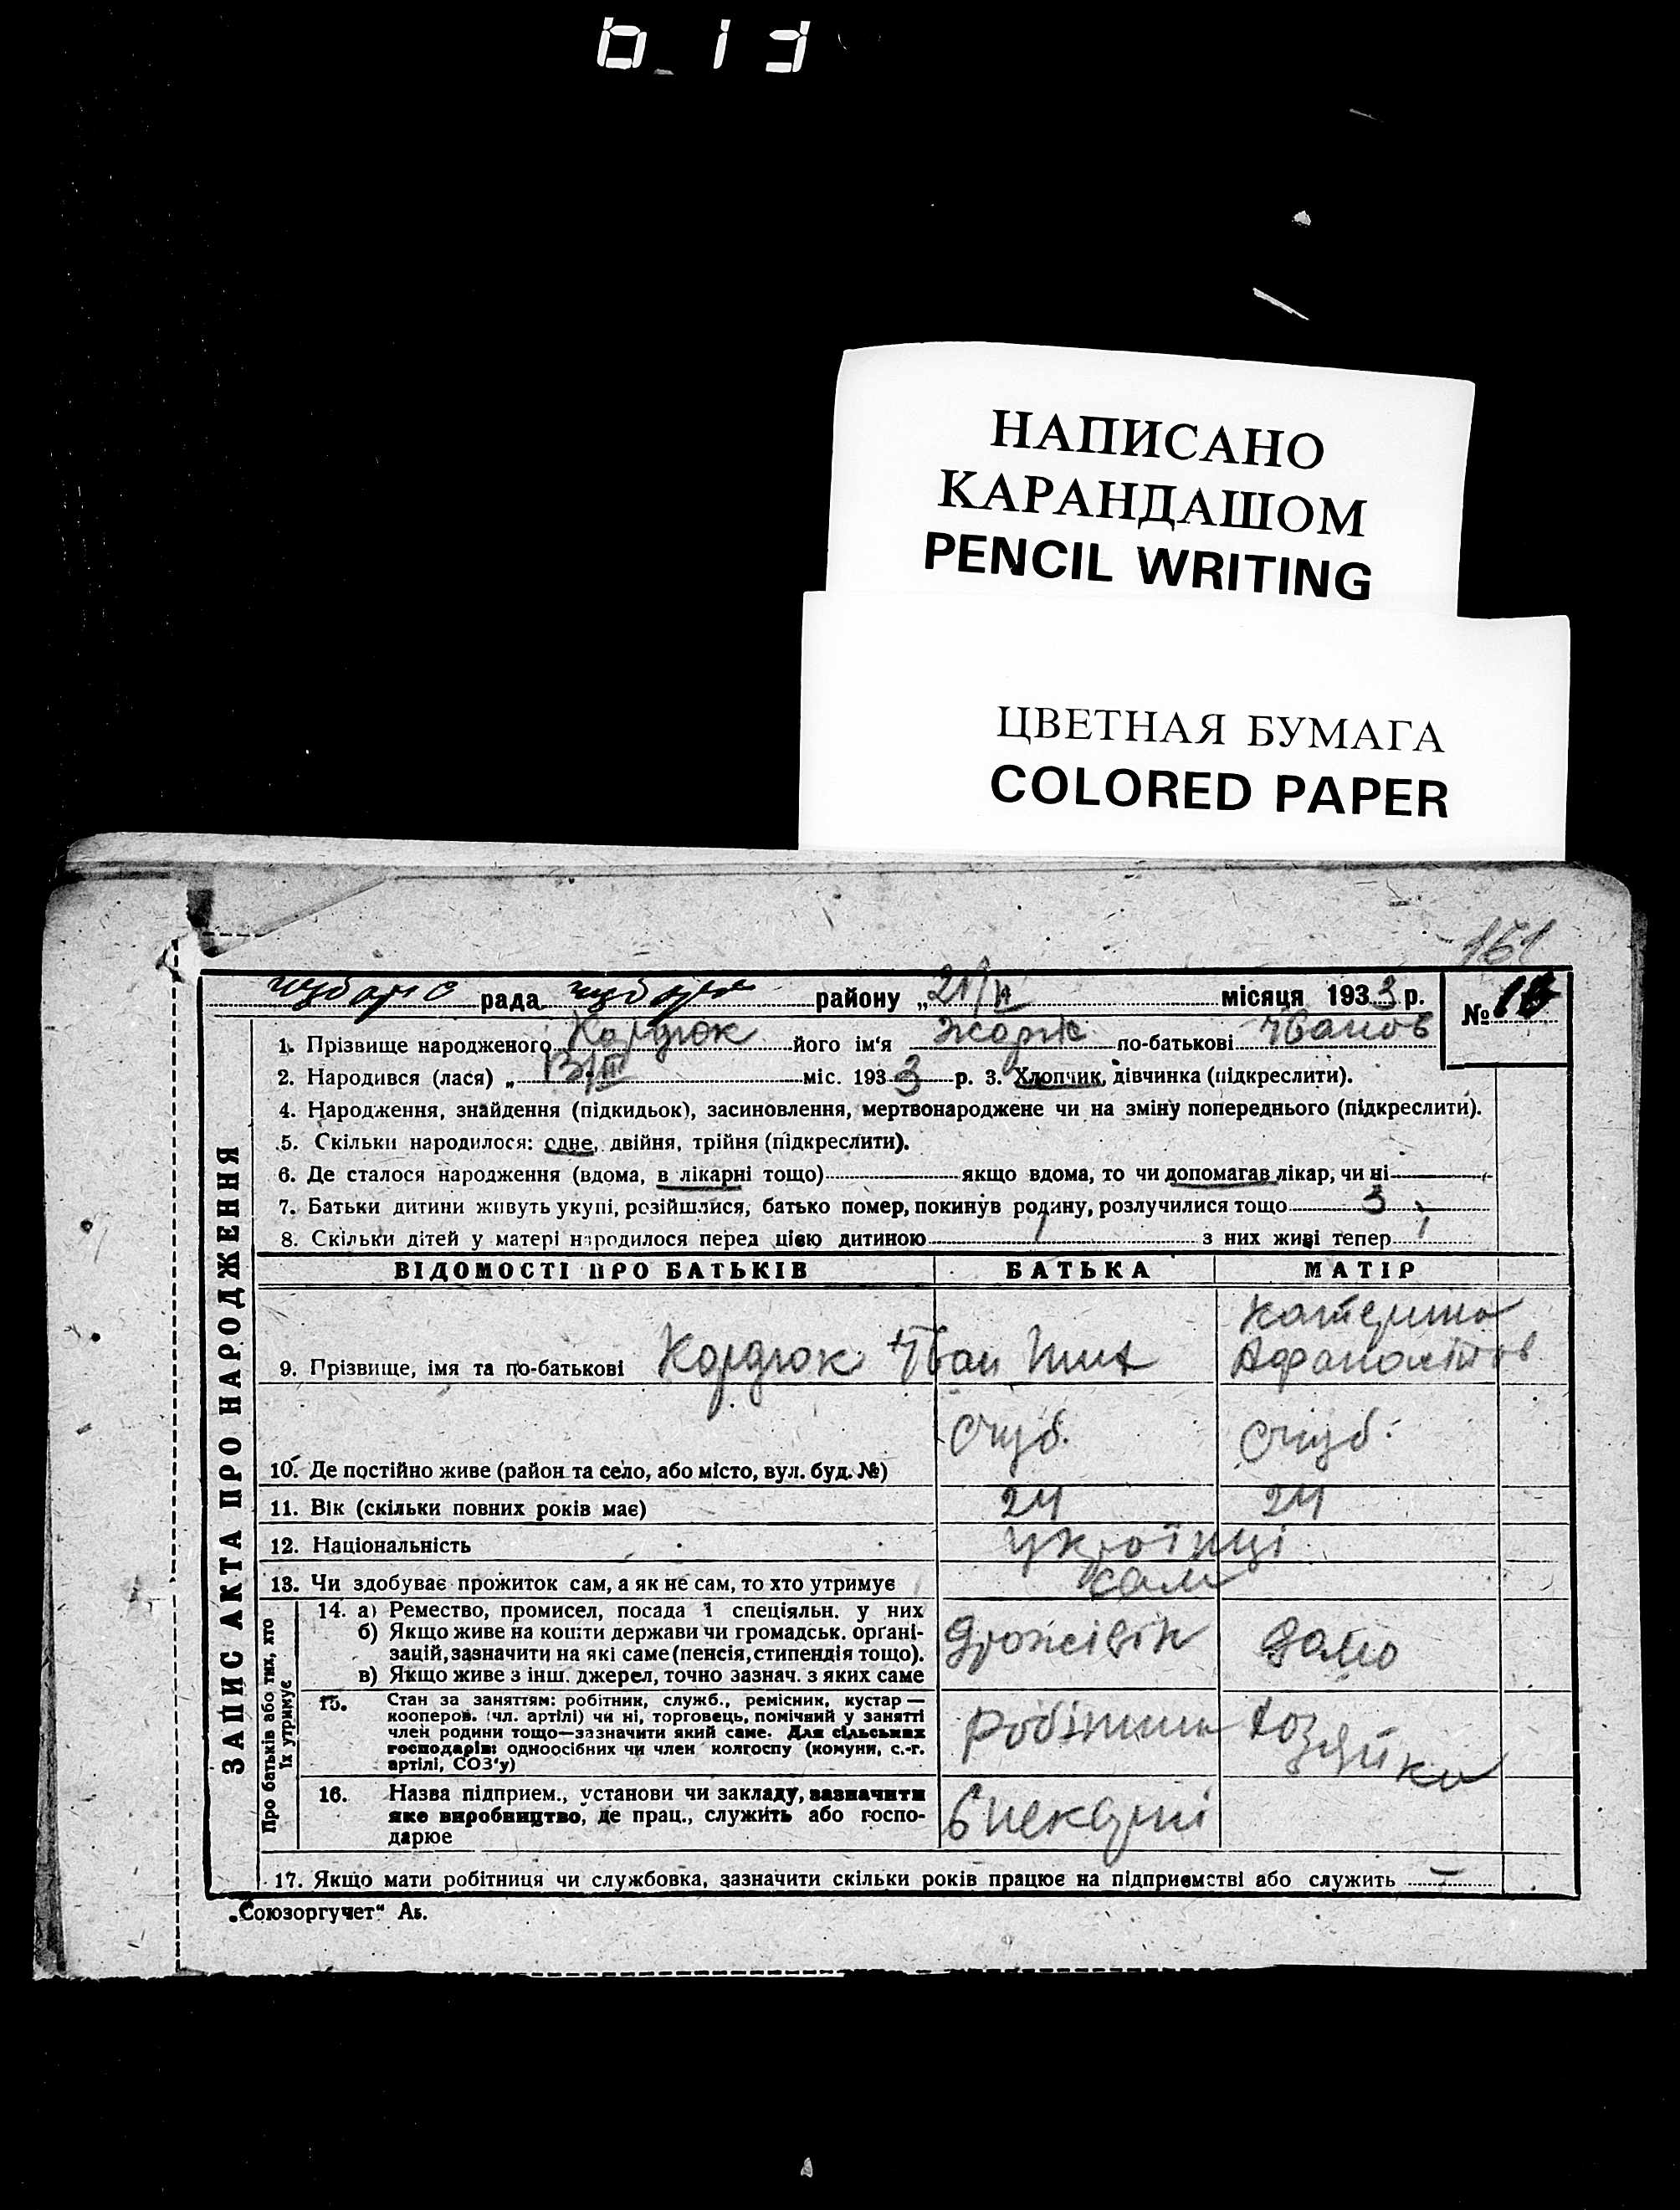 НАПИСАНО
КАРАНДАШОМ
PENCIL WRITING
ЦВЕТНАЯ БУМАГА
COLORED PAPER
161
рада району „21/ місяця 1933 р. №
1. Прізвище народженого Кордюк його ім'я Жорж по-батькові Іванов
2. Народився (лася) „ 13/III міс. 1933 р. 3. Хлопчик, дівчинка (підкреслити).
4. Народження, знайдення (підкидьок), засиновлення, мертвонароджене чи на зміну попереднього (підкреслити).
5. Скільки народилося: одне, двійня, трійня (підкреслити).
6. Де сталося народження (вдома, в лікарні тощо) якщо вдома, то чи допомагав лікар, чи ні
7. Батьки дитини живуть укупі, розійшлися, батько помер, покинув родину, розлучилися тощо
8. Скільки дітей у матері народилося перед цією дитиною 1 з них живі тепер 1
ЗАПИС АКТА ПРО НАРОДЖЕННЯ
ВІДОМОСТІ ПРО БАТЬКІВ БАТЬКА МАТІР
Катерина
9. Прізвище, імя та по-батькові Кордюк Іван
10. Де постійно живе (район та село, або місто, вул. буд. №)
11. Вік (скільки повних років має) 24 24
12. Національність українці
13. Чи здобуває прожиток сам, а як не сам, то хто утримує сам
Про батьків або тих, хто їх утримує
14. а) Ремество, промисел, посада і спеціяльн. у них
б) Якщо живе на кошти держави чи громадськ. органі-
зацій, зазначити на які саме (пенсія, стипендія тощо).
в) Якщо живе з інш. джерел, точно зазнач. з яких саме
дрожівік дамо
15. Стан за заняттям: робітник, служб., ремісник, кустар —
кооперов. (чл. артілі) чи ні, торговець, помічний у занятті
член родини тощо—зазначити який саме. Для сільських
господарів: одноосібних чи член колгоспу (комуни, с.-г.
артілі, СОЗ'у)
робітник хозяйка
16. Назва підприєм., установи чи закладу, зазначити
яке виробництво, де прац., служить або госпо-
дарює
в пекарні
17. Якщо мати робітниця чи службовка, зазначити скільки років працює на підприємстві або служить —
„Союзоргучет“ Аб.